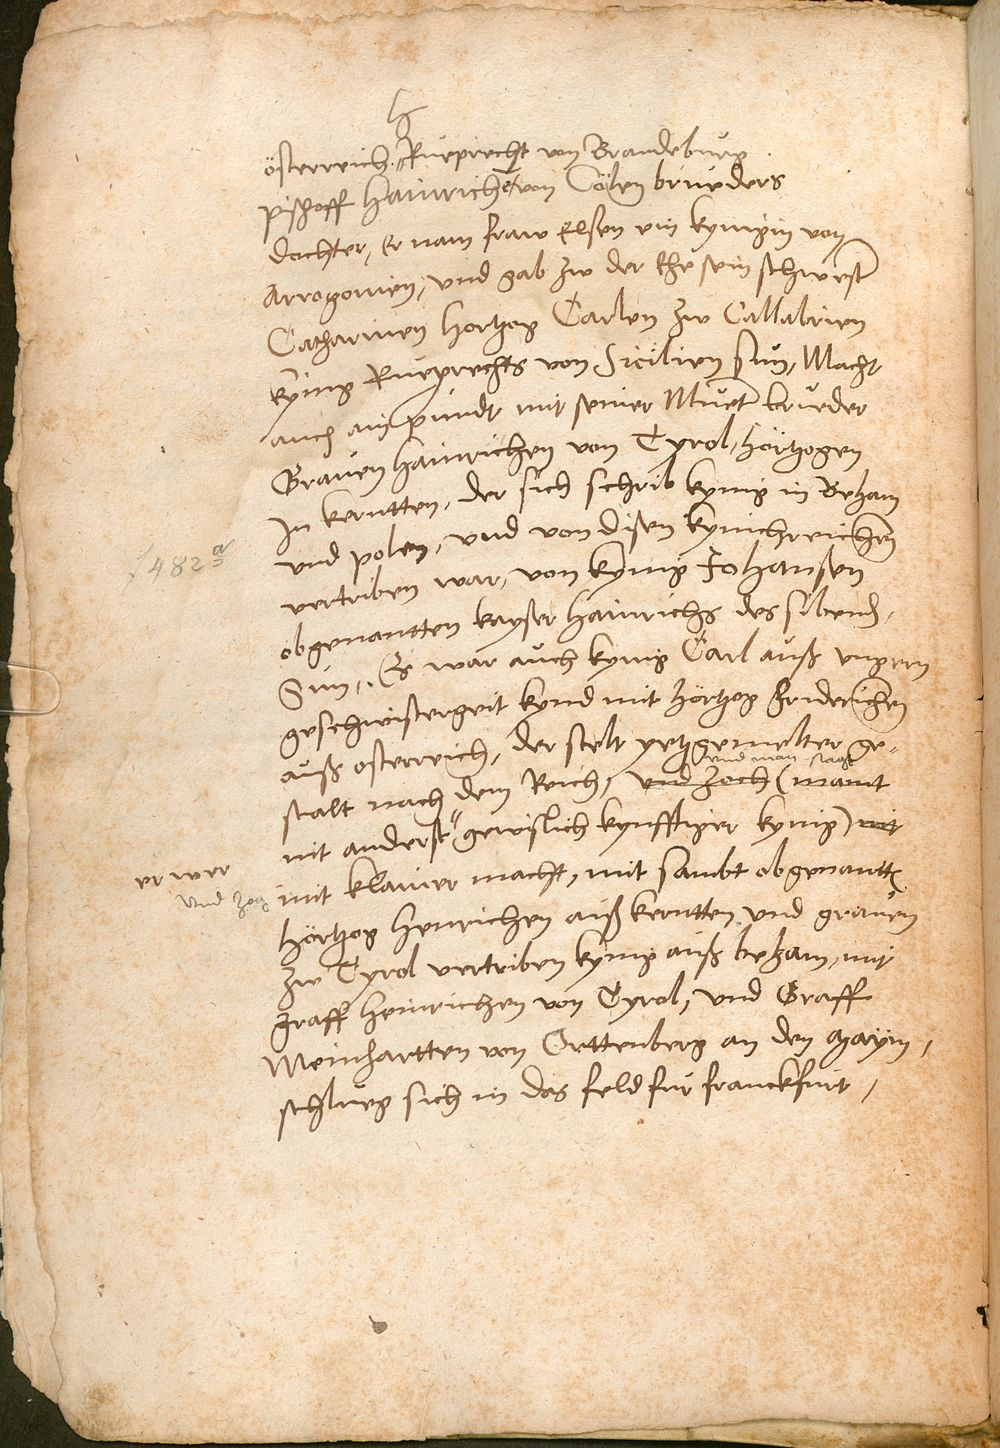 h
österreich. Rueprecht von Brandeburg
pischoff Hainrichs von Cölen brueders
dochter, Er nam fraw Elsen ein kynigin von
Arrogonien, und gab zw der Ehe sein schwest
Catharinen Hertzog Carlen zw Callabrien
kynig Rueprechts von Sicilien sun, Macht
auch ain pündt mit seiner Muet brueder
Graven Hainrichen von Tyrol, hörtzogen
In kerntten, der sich schrib kynig in Beham
und polen, und von disen kynichreichen
f 482 a
vertriben war, von kynig Johansen
obgenantten kayser Hainrichs des sibend,
Sun, Es war auch kynig Carl auß ungern
geschwistergeit kynd mit hörtzog Friderichen
auß osterreich, der stelt yetzgemelter ge-
und man sagt
stalt nach dem Reich, und zoch (mant
nit anderst gewislich kynfftiger kynig) mit
er wer
und zog
mit klainer macht, mit sambt obgenantt
hörtzog Henrichen auß kerntten und graven
zw Tyrol vertriben kynig auß beham, mit
graff Heinrichen von Tyrol, und Graff
Meinhartten von Orttenberg an den Mayn,
schlueg sich in das feld fur franckfurt,